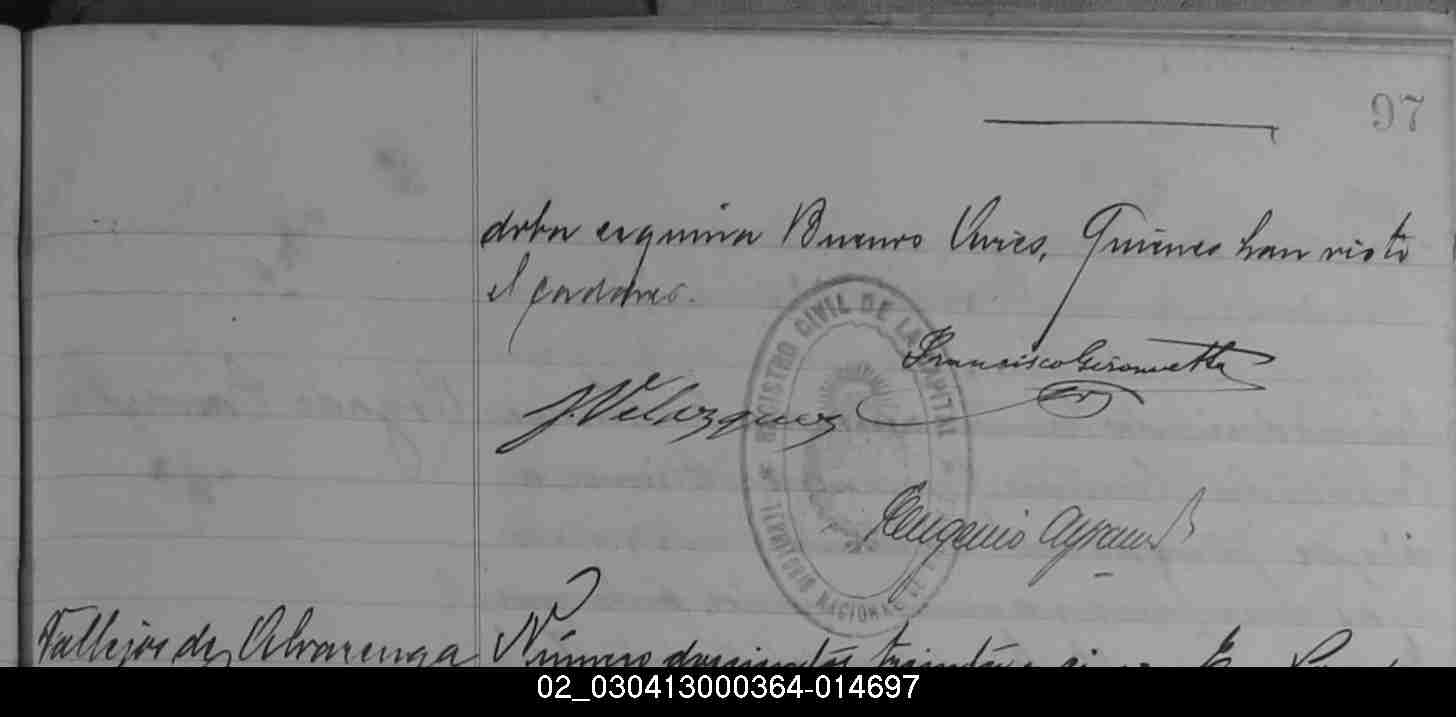 97
doba esquina Buenos Aires, Quienes han visto
el cadáver.
Francisco Geronuetta
J. Velazquez
REGISTRO CIVIL DE LA CAPITAL
TERRITORIO NACIONAL DE
Eugenio Ayraud
Vallejos de Alvarenga Número doscientos treinta
02_030413000364-014697